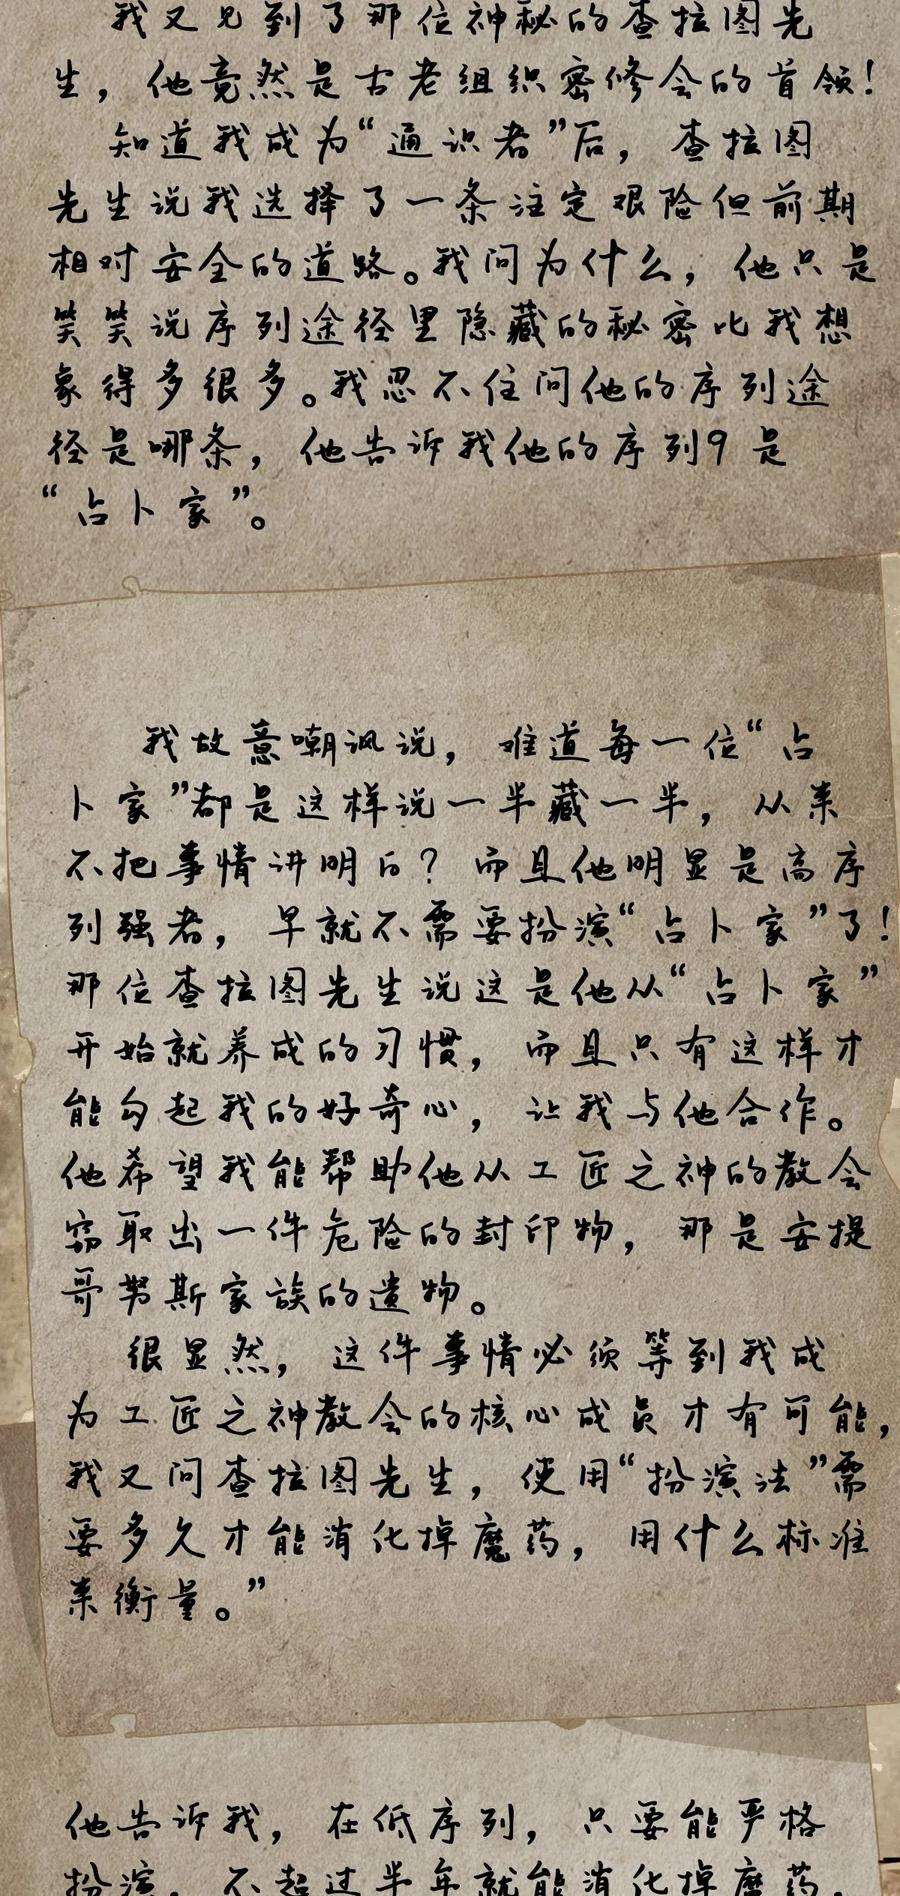 我又见到了那位神秘的查拉图先
生，他竟然是古老组织密修会的首领！
知道我成为“通识者”后，查拉图
先生说我选择了一条注定艰险但前期
相对安全的道路。我问为什么，他只是
笑笑说序列途径里隐藏的秘密比我想
象得多很多。我忍不住问他的序列途
径是哪条，他告诉我他的序列9是
“占卜家”。
我故意嘲讽说，难道每一位“占
卜家”都是这样说一半藏一半，从来
不把事情讲明白？而且他明显是高序
列强者，早就不需要扮演“占卜家”了！
那位查拉图先生说这是他从“占卜家”
开始就养成的习惯，而且只有这样才
能勾起我的好奇心，让我与他合作。
他希望我能帮助他从工匠之神的教会
窃取出一件危险的封印物，那是安提
哥努斯家族的遗物。
很显然，这件事情必须等到我成
为工匠之神教会的核心成员才有可能，
我又问查拉图先生，使用“扮演法”需
要多久才能消化掉魔药，用什么标准
来衡量。”
他告诉我，在低序列，只要能严格
扮演，不超过半年就能消化掉魔药，